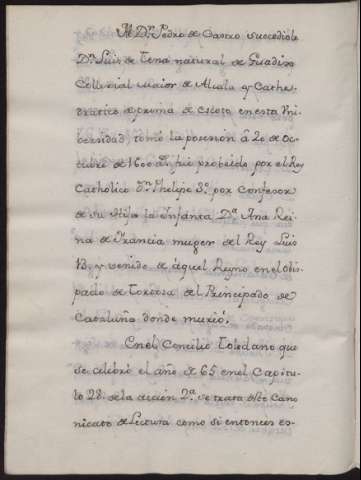 Al Dn. Pedro de Castro succediole
Dn. Luis de Tena natural de Guadix
Collexial maior de Alcala y Cathe-
dratico de prima de Escoto en esta Uni
bersidad, tomò la posesion à 20 de oc-
tubre de 1600 fue probeido por el Rey
Catholico Dn. Phelipe 3º. por Confesor
de su Hija la Infanta, Dª. Ana Rei-
na de Francia muger del Rey Luis
13, y venido de aquel Reyno en el obis-
pado de Tortosa del Principado de
Cataluña donde murió,
En el Concilio Toledano que
se celebró el año de 65 en el Capitu-
lo 28 de la accion 2ª. se trata de Cano
nicato de Lectura como si entonces es-